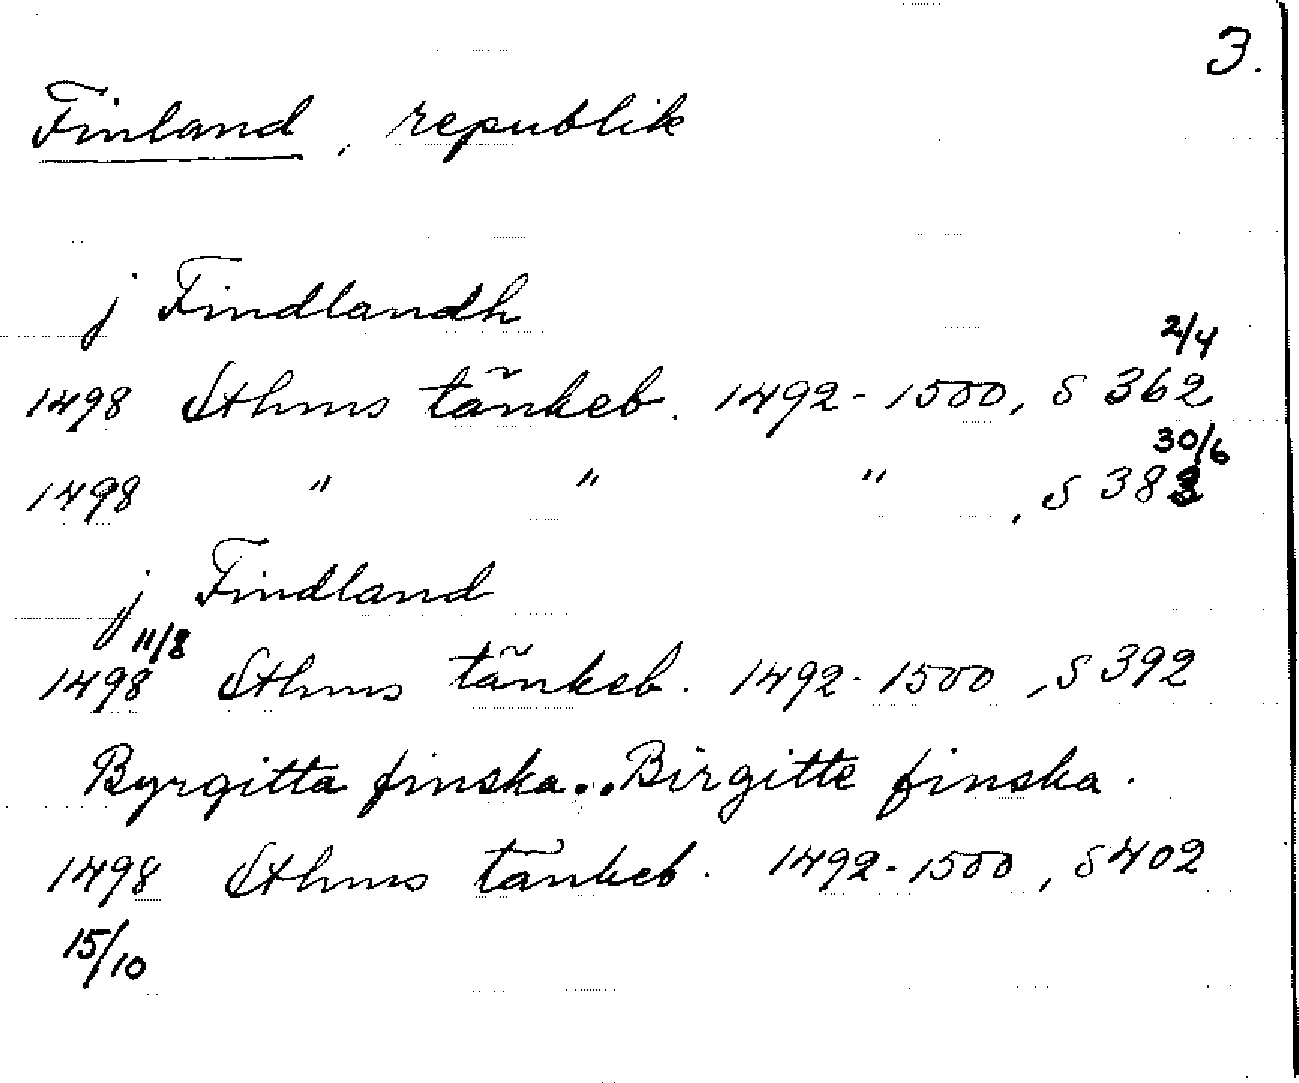 3.
Finland, republik
j Findlandh
2/4
1498 Sthms tänkeb. 1492-1500, s 362
30/6
1498 " " ", s 383
j Findland
11/8
1498 Sthms tänkeb. 1492-1500, s 392
Byrgitta finska.. Birgitte finska.
1498 Sthms tänkeb. 1492-1500, s 402
15/10